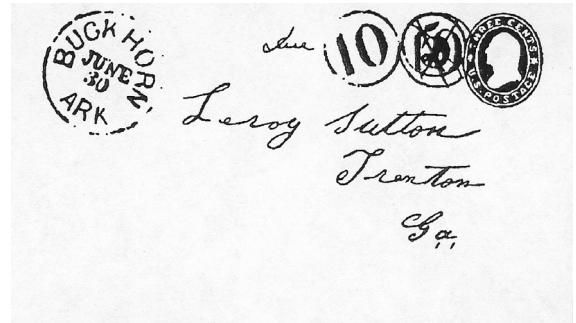 BUCK HORN
JUNE
30
ARK
Due 10
THREE CENTS
U.S. POSTAGE
Leroy Sutton
Trenton
Ga